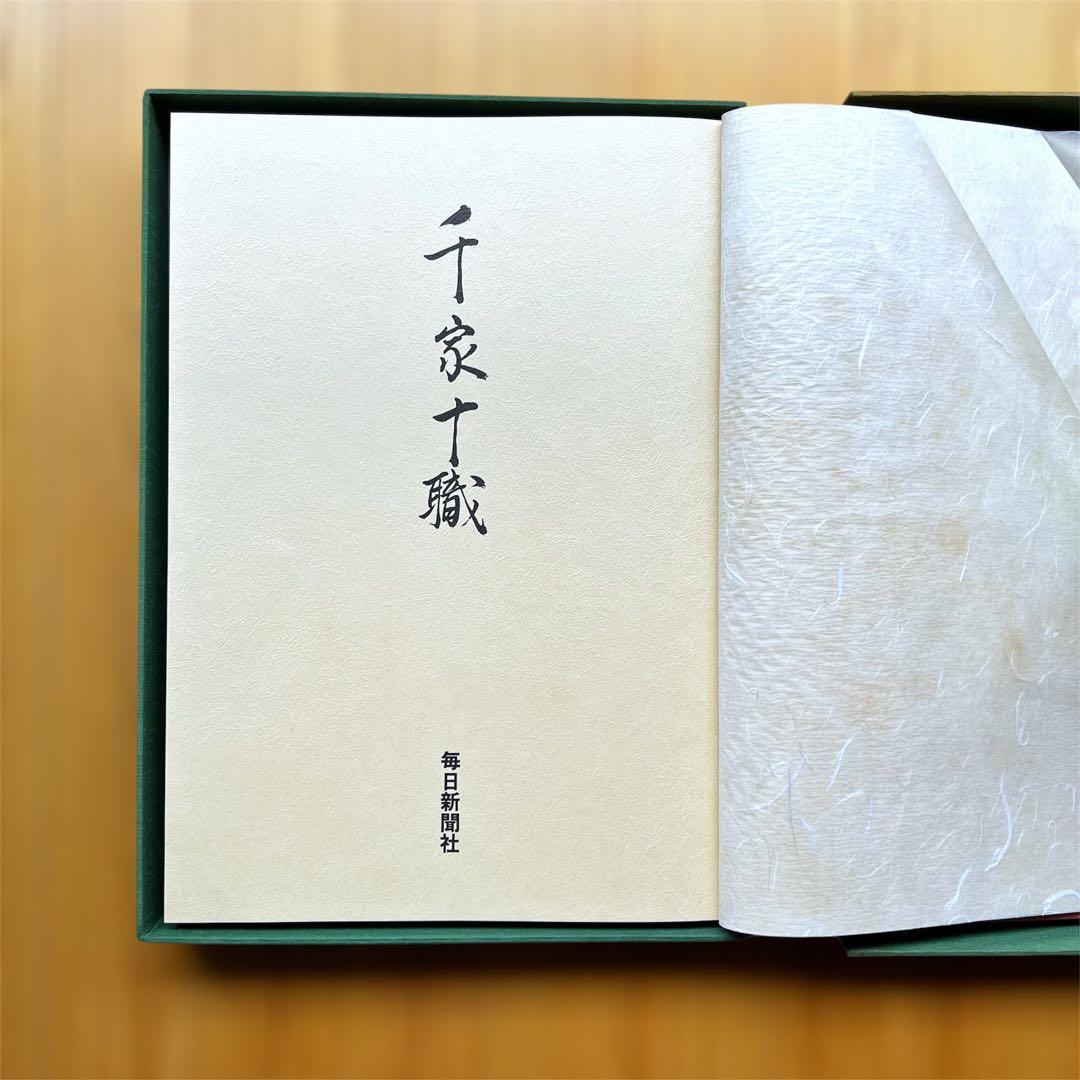 千家十職
毎日新聞社